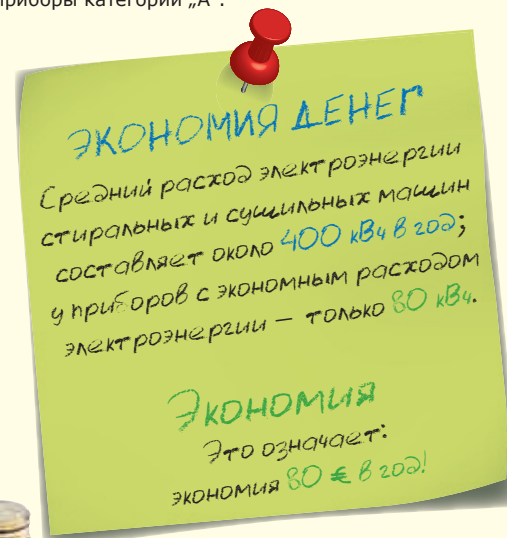 приборы категории „А".
ЭКОНОМИЯ ДЕНЕГ
Средний расход электроэнергии
стиральных и сушильных машин
составляет около 400 кВч в год;
у приборов с экономным расходом
электроэнергии – только 80 кВч.
Экономия
Это означает:
экономия 80 € в год!